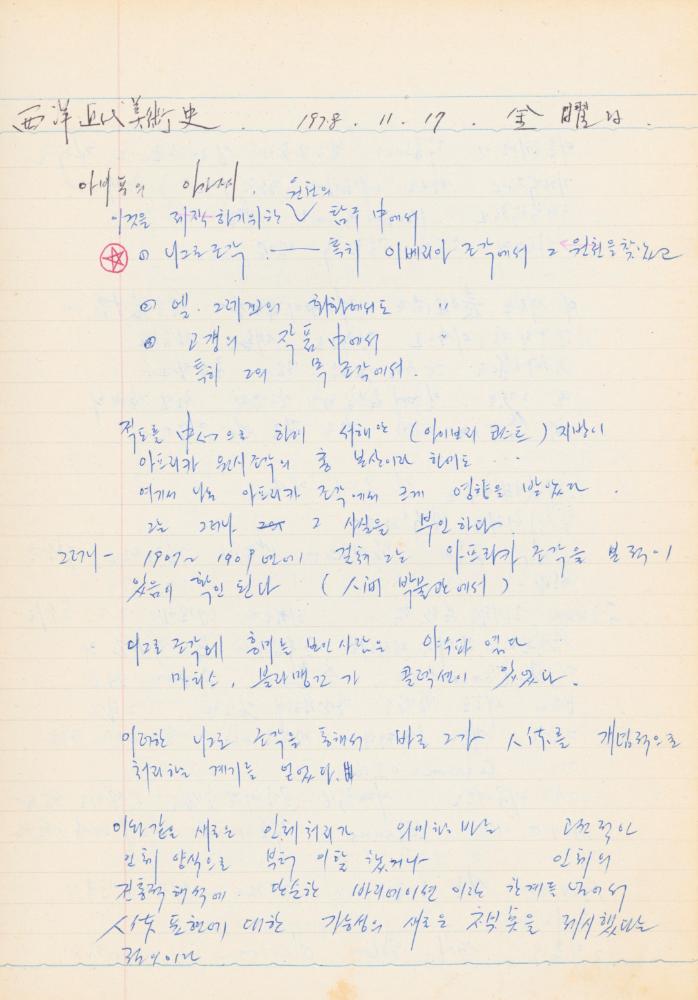 西洋近代美術史. 1978. 11. 17. 金曜日.
아비뇽의 아가씨
원천의
이것을 제작하기위한 ∨ 탐구 中에서
① 니그로조각. ── 특히 이베리아 조각에서 그 원천을 찾았고
② 엘. 그레코의 회화에서도 〃
③ 고갱의 작품 中에서 〃
특히 그의 목조각에서.
적도를 中心으로 하여 서해안 (아이보리 코스트) 지방이
아프리카 원시조각의 총 본산이라 하여도 ...
여기서 나온 아프리카 조각에서 크게 영향을 받았다.
그는 그러나 그 사실을 부인하다.
그러나 - 1907~1909년에 걸쳐 그는 아프리카 조각을 본적이
있음이 확인 된다 (人類 박물관에서)
니그로 조각에 흥미를 보인사람은 야수파 였다
마티스, 블라맹크가 콜렉션이 있었다.
이러한 니그로 조각을 통해서 바로 그가 人体를 개념적으로
처리하는 계기를 얻었다.
이와같은 새로운 인체처리가 의미하는 바는 고전적인
인체 양식으로 부터 이탈 했거나 인체의
전통적해석에 단순한 바리에이션 이라는 한계를 넘어서
人体 표현에 대한 가능성의 새로운 을 제시했다는
점이다